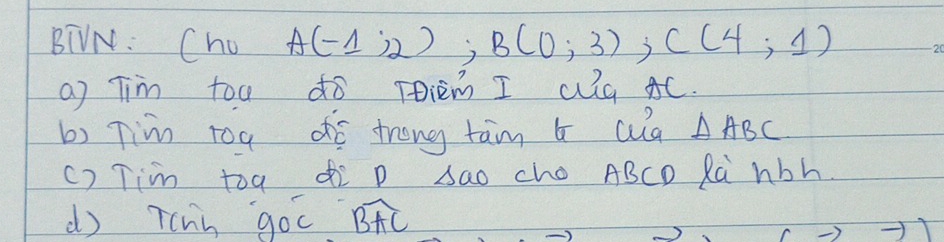 BTVN: Cho A(-1;2) ; B(0; 3) ; C(4 ; 1)
a) Tìm toạ độ TĐiểm I của AC.
b) Tìm toạ độ trọng tâm G của Δ ABC
c) Tìm toạ độ D sao cho ABCD là hbh.
d) Tính góc BAC